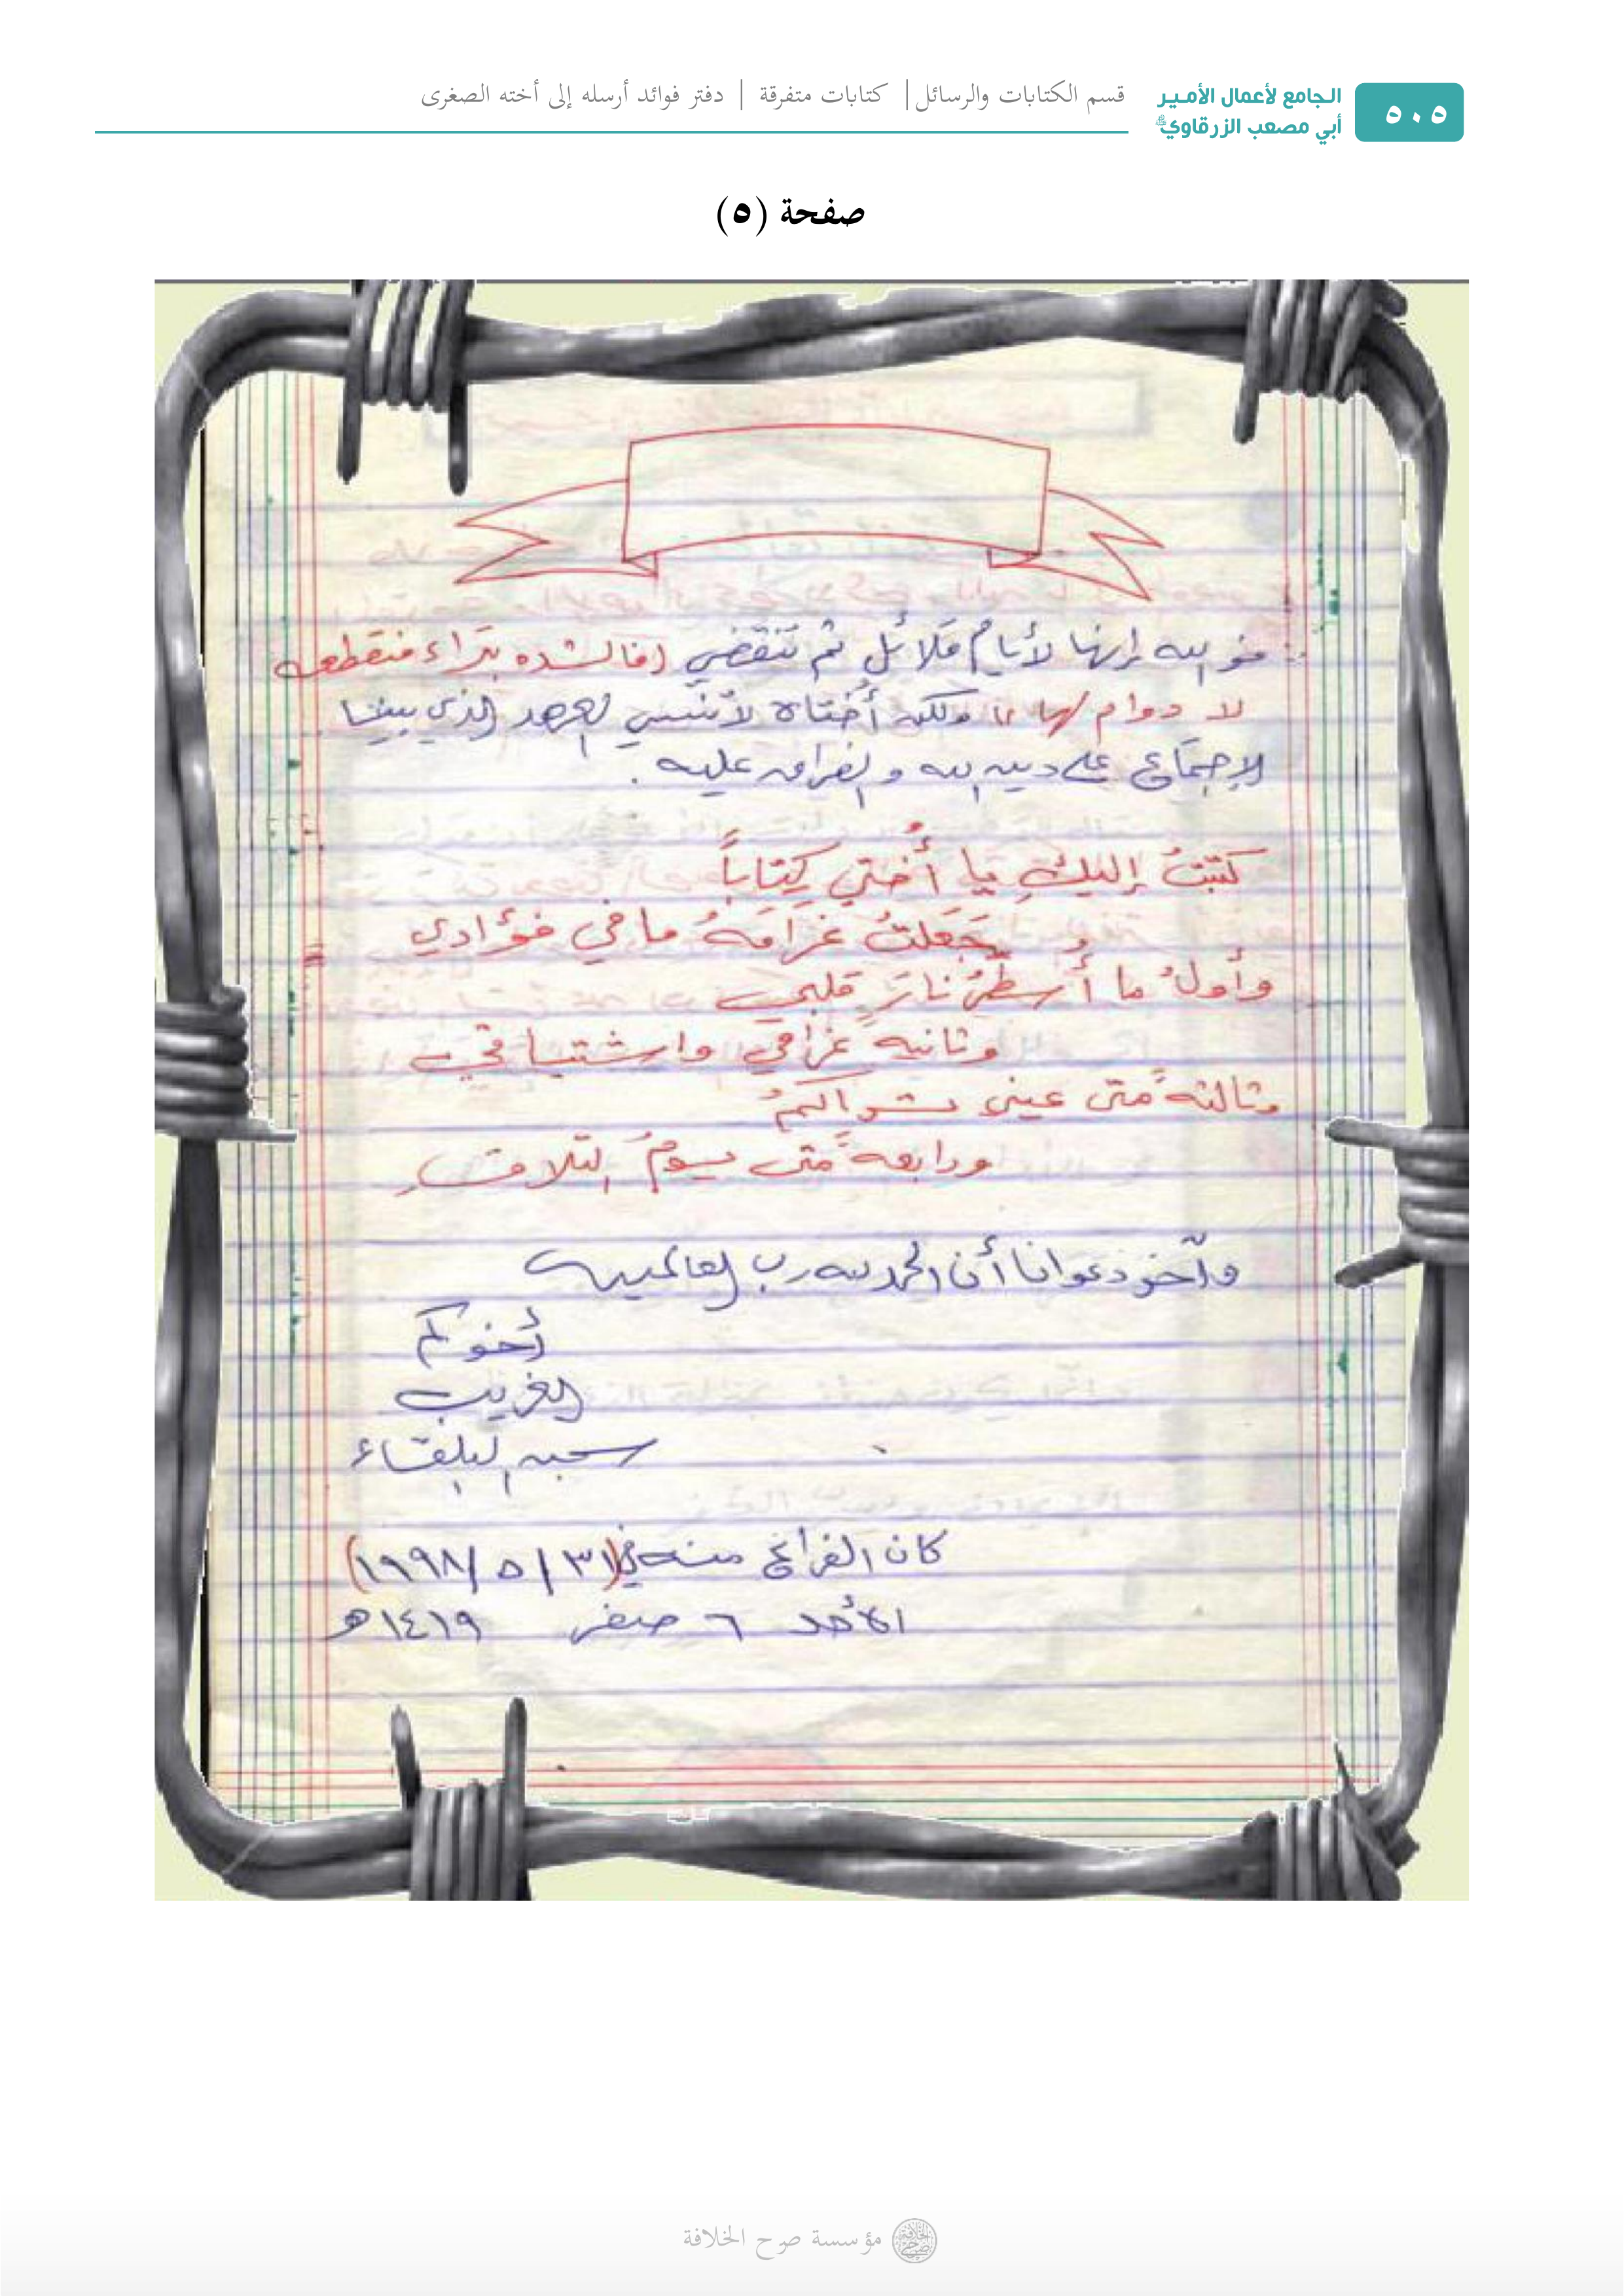 ٥٠٥
الجامع لأعمال الأمير
أبي مصعب الزرقاوي
قسم الكتابات والرسائل | كتابات متفرقة | دفتر فوائد أرسله إلى أخته الصغرى
صفحة (٥)
فو الله إنها لأيام قلائل ثم تنقضي (فالشده بتراء منقطعه
لا دوام لها)) ولكن أختاه لا تنسي العهد الذي بيننا
الإجتماع على دين الله والفراق عليه .
كتبتُ إليكِ يا أُختي كِتاباً
جَعَلتُ غرامَهُ ما في فؤادي
وأولُ ما أُسطِّرُ نارَ قلبي
وثانيه غرامي واشتياقي
وثالثه متى عيني تراكمُ
ورابعه متى يومُ التلاقِ
وآخر دعوانا أن الحمد لله رب العالمين
أخوكم
الغريب
سجن البلقاء
كان الفراغ منه في (٣١ / ٥ / ١٩٩٨)
الأحد ٦ صفر ١٤١٩هـ
مؤسسة صرح الخلافة